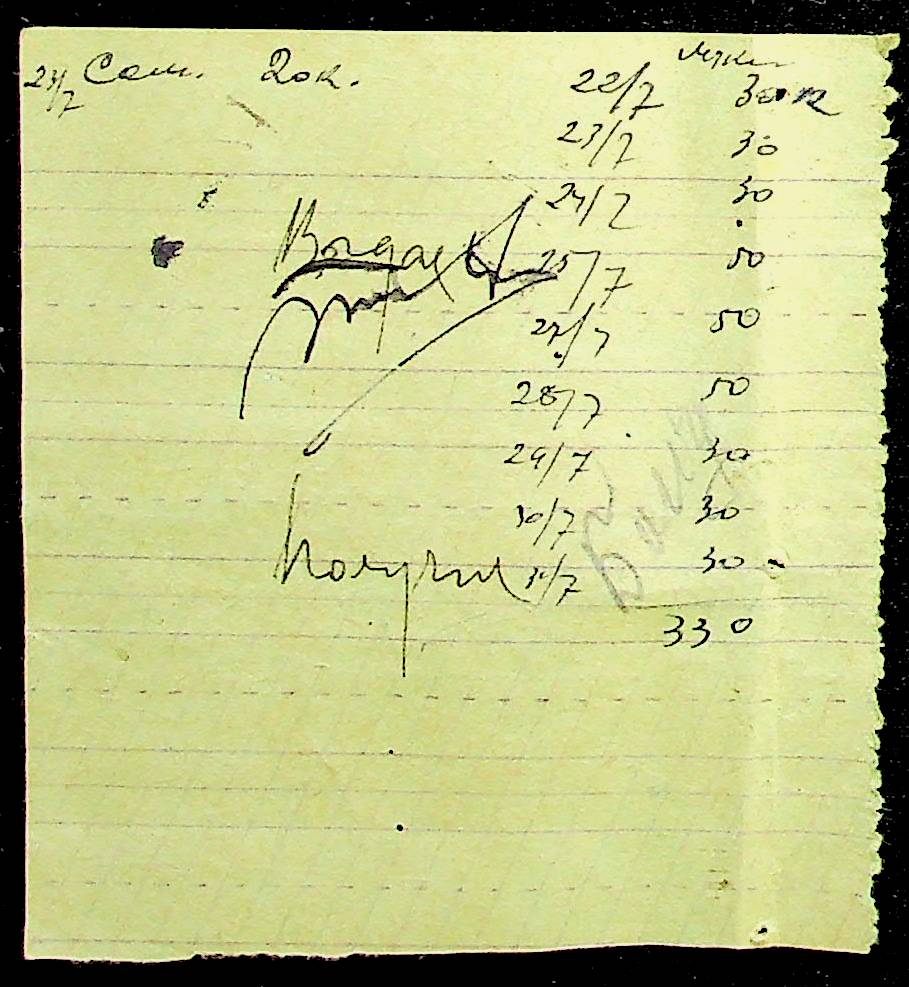 24/7 Сам. 20к.
22/7 30к
23/7 30
24/7 30
25/7 50
27/7 50
28/7 50
29/7 30
30/7 30
Получил 31/7 30
330